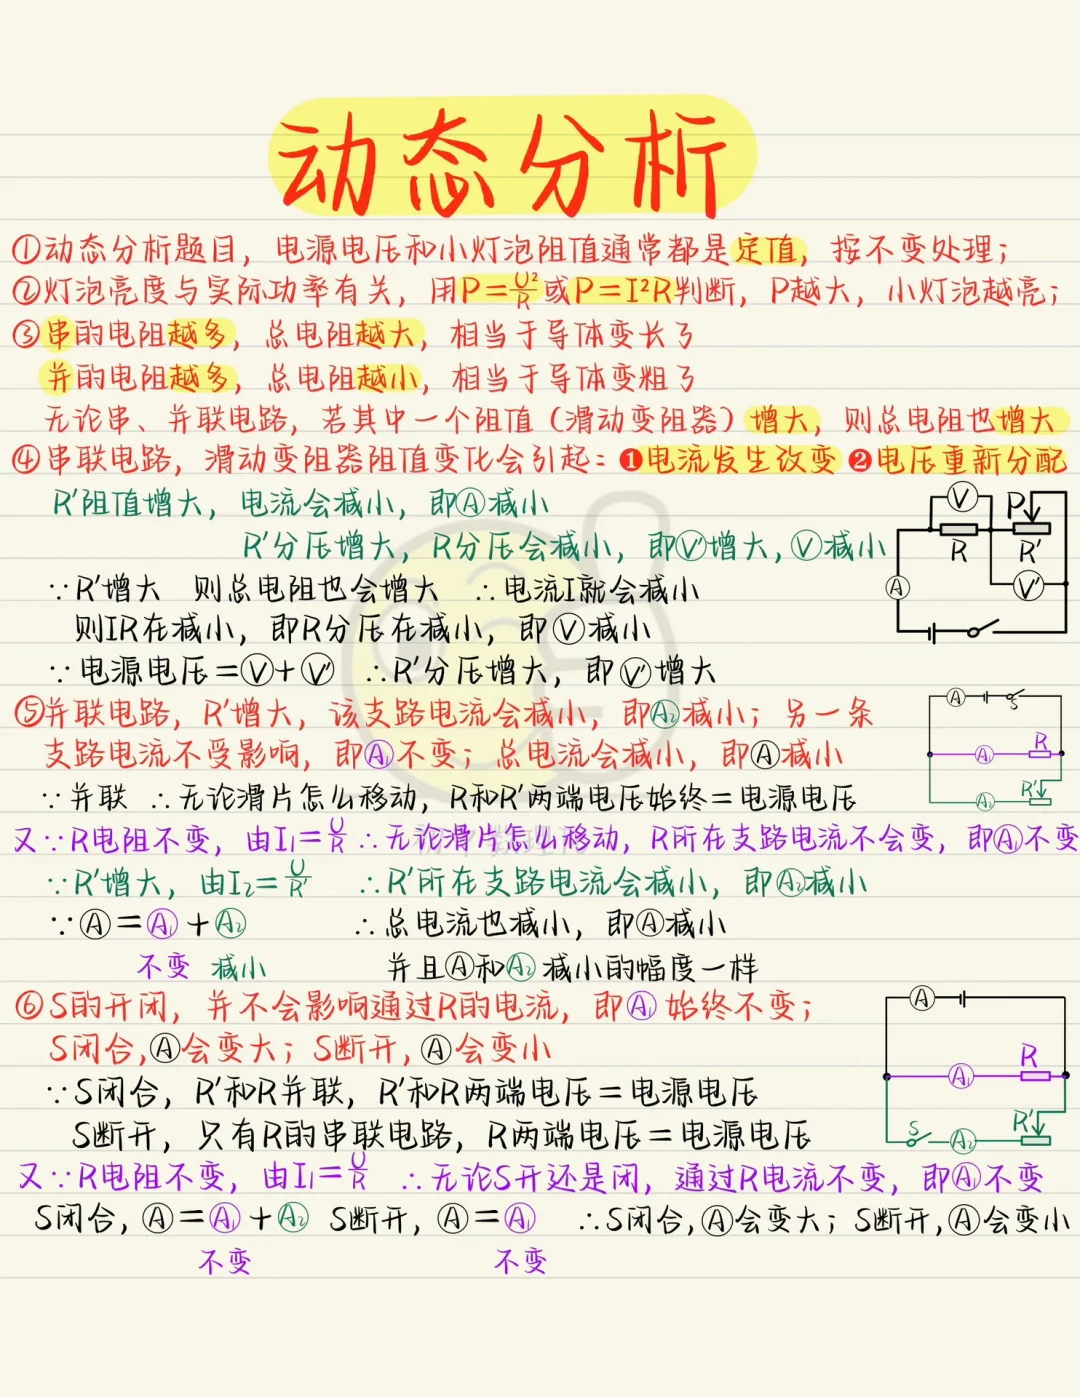 动态分析
①动态分析题目，电源电压和小灯泡阻值通常都是定值，按不变处理；
②灯泡亮度与实际功率有关，用P=U²/R或P=I²R判断，P越大，小灯泡越亮；
③串的电阻越多，总电阻越大，相当于导体变长了
并的电阻越多，总电阻越小，相当于导体变粗了
无论串、并联电路，若其中一个阻值（滑动变阻器）增大，则总电阻也增大
④串联电路，滑动变阻器阻值变化会引起：❶电流发生改变 ❷电压重新分配
R′阻值增大，电流会减小，即Ⓐ减小
R′分压增大，R分压会减小，即V′增大，Ⓥ减小
∵R′增大 则总电阻也会增大 ∴电流I就会减小
则IR在减小，即R分压在减小，即Ⓥ减小
∵电源电压=Ⓥ+V′ ∴R′分压增大，即V′增大
V P R R′ A V′
⑤并联电路，R′增大，该支路电流会减小，即A₂减小；另一条
支路电流不受影响，即A₁不变；总电流会减小，即Ⓐ减小
A S A₁ R A₂ R′
∵并联 ∴无论滑片怎么移动，R和R′两端电压始终=电源电压
又∵R电阻不变，由I₁=U/R ∴无论滑片怎么移动，R所在支路电流不会变，即A₁不变
∵R′增大，由I₂=U/R′ ∴R′所在支路电流会减小，即A₂减小
∵Ⓐ=A₁+A₂ ∴总电流也减小，即Ⓐ减小
不变 减小 并且Ⓐ和A₂减小的幅度一样
⑥S的开闭，并不会影响通过R的电流，即A₁始终不变；
S闭合，Ⓐ会变大；S断开，Ⓐ会变小
∵S闭合，R′和R并联，R′和R两端电压=电源电压
S断开，只有R的串联电路，R两端电压=电源电压
A A₁ R S A₂ R′
又∵R电阻不变，由I₁=U/R ∴无论S开还是闭，通过R电流不变，即A₁不变
S闭合，Ⓐ=A₁+A₂ S断开，Ⓐ=A₁ ∴S闭合，Ⓐ会变大；S断开，Ⓐ会变小
不变 不变